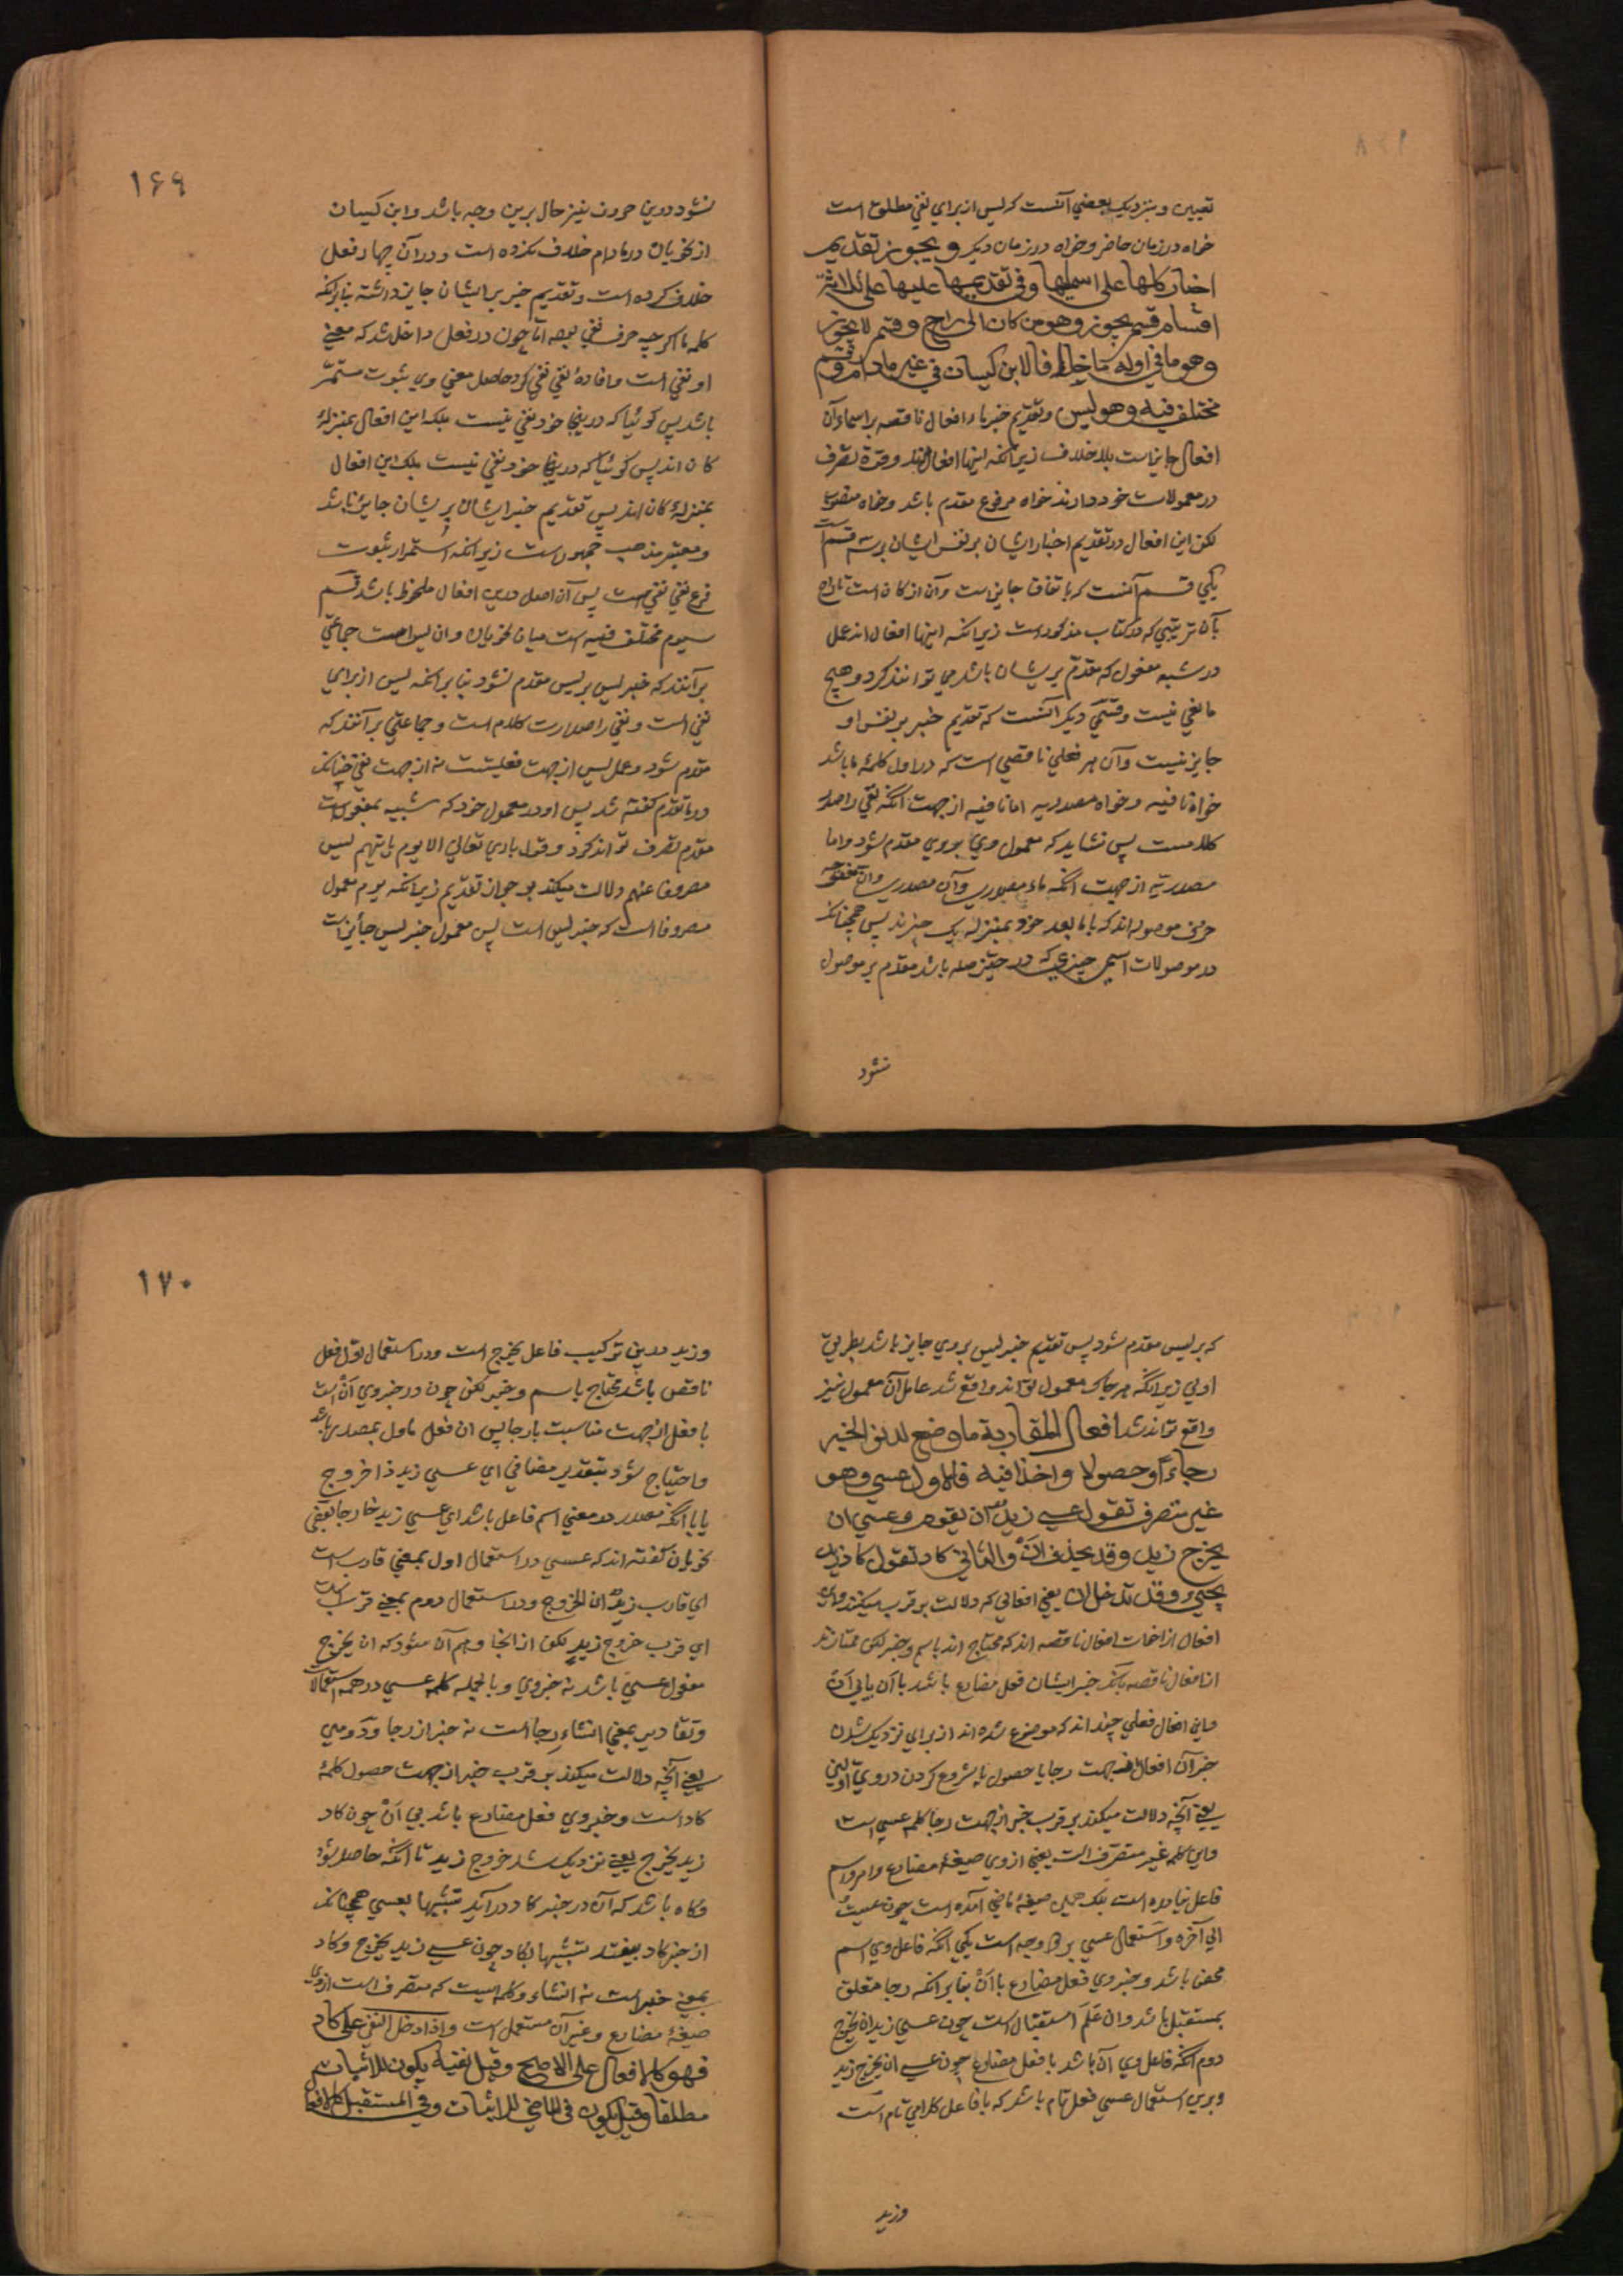 تعیین و بنزدیک بعضی آنست که لیس از برای نفی مطلق است
خواه در زمان حاضر و خواه در زمان دیکر و یجوز تقدیم
اخبار کلها علی اسمایها و فی تقدیمها علیها علی ثلاثة
اقسام قسم یجوز وهو من کان الی راح و قسم لا یجوز
وهو ما فی اوله ما خلافا لابن کیسان فی غیر مادام و قسم
مختلف فیه وهو لیس و تقدیم خبرهاء افعال ناقصه بر اسماء آن
افعال جایز است بلا خلاف زیرانکه اینها افعال اند و قوة تصرف
در معمولات خود دارند خواه مرفوع مقدم باشد و خواه منصوب
لکن این افعال در تقدیم اخبار ایشان بر نفس ایشان بر سه قسم است
یکی قسم آنست که باتفاق جایز است و آن از کان است تا راح
بآن ترتیبی که در کتاب مذکور است زیرانکه اینها افعال اند عمل
در شبه مفعول که مقدم بریشان باشد می توانند کرد و هیچ
مانعی نیست و قسمی دیکر آنست که تقدیم خبر بر نفس او
جایز نیست و آن هر فعلی ناقصی است که در اول کلمهٔ ما باشد
خواه نافیه و خواه مصدریه اما نافیه از جهت آنکه نفی را صدر
کلامست پس نشاید که معمول وی بر وی مقدم شود و اما
مصدریه از جهت آنکه ماء مصدری و آن مصدری و ان مفتوحه
حرف موصوله اند که با ما بعد خود بمنزله یک چیزند پس همچنانکه
در موصولات اسمی چیزی که در حیّز صله باشد مقدم بر موصول
نشود
۱۶۹
نشود درین حروف نیز حال برین وجه باشد و ابن کیسان
از نحویان در مادام خلاف نکرده است و در آن چهار فعل
خلاف کرده است و تقدیم خبر بر ایشان جایز داشته بنابرآنکه
کلمه ما اکرچه حرف نفی بود اما چون در فعل داخل شد که معنی
او نفی است و افادهٔ نفی نفی کرد حاصل معنی وی ثبوت مستمر
باشد پس کوئیا که درینجا خود نفی نیست بلکه این افعال بمنزلهٔ
کان اند پس کوئیا که درینجا خود نفی نیست بلکه این افعال
بمنزلهٔ کان اند پس تقدیم خبر ایشان بریشان جایز باشد
و معتبر مذهب جمهور است زیرانکه استمرار ثبوت
فرع نفی نفی است پس آن اصل درین افعال ملحوظ باشد قسم
سیوم مختلف فیه است میان نحویان و ان لیس است جماعتی
برآنند که خبر لیس بر لیس مقدم نشود بنا بر آنکه لیس از برای
نفی است و نفی را صدارت کلام است و جماعتی برآنند که
مقدم شود و عمل لیس از جهت فعلیتست نه از جهت نفی چنانکه
در ما تقدم کفته شد پس او در معمول خود که شبیه بمفعول است
مقدم تصرف تواند کرد و قول باری تعالی الا یوم یاتیهم لیس
مصروفا عنهم دلالت میکند بر جواز تقدیم زیرانکه یوم معمول
مصروفا است که خبر لیس است پس معمول خبر لیس جائز است
که بر لیس مقدم شود پس تقدیم خبر لیس بر وی جایز باشد بطریق
اولی زیرانکه هر جا که معمول تواند واقع شد عامل آن معمول نیز
واقع تواند شد افعال المقاربة ما وضع لدنو الخبر
رجاءً او حصولا او اخذا فیه فالاول عسی وهو
غیر متصرف تقول عسی زید ان یقوم و عسی ان
یخرج زید و قد یحذف ان والثانی کاد تقول کاد زید
یجیء وقد تدخل ان یعنی افعالی که دلالت بر قرب میکنند و این
افعال از اخوات افعال ناقصه اند که محتاج اند باسم و خبر لکن ممتازند
از افعال ناقصه بآنکه خبر ایشان فعل مضارع باشد با ان یا بی ان
و این افعال فعلی چند اند که موضوع شده اند از برای نزدیک شدن
خبر آن افعال از جهت رجا یا حصول یا شروع کردن در وی اولی
یعنی آنچه دلالت میکند بر قرب خبر از جهت رجا کلمه عسی است
و این کلمه غیر متصرف است یعنی از وی صیغهٔ مضارع و امر و اسم
فاعل نیامده است بلکه همین صیغهٔ ماضی آمده است چون عسیت
الی آخره و استعمال عسی بر دو وجه است یکی آنکه فاعل وی اسم
محض باشد و خبر وی فعل مضارع با ان بنا بر آنکه رجا متعلق
بمستقبل باشد و ان علم استقبال است چون عسی زید ان یخرج
دوم آنکه فاعل وی ان باشد با فعل مضارع چون عسی ان یخرج زید
و برین استعمال عسی فعل تام باشد که با فاعل کلامی تام است
وزید
۱۷۰
و زید درین ترکیب فاعل یخرج است و در استعمال اول فعل
ناقص باشد محتاج باسم و خبر لکن چون در خبر وی ان است
با فعل از جهت مناسبت با رجا پس ان فعل ماول بمصدر باشد
و احتیاج شود بتقدیر مضافی ای عسی زید ذا خروج
یا بآنکه مصدر در معنی اسم فاعل باشد ای عسی زید خارجا بعضی
نحویان کفته اند که عسی در استعمال اول بمعنی قارب است
ای قارب زید ان الخروج و در استعمال دوم بمعنی قرب است
ای قرب خروج زید لکن از انجا وهم آن میشود که ان یخرج
مفعول عسی باشد نه خبر وی و بالجمله کلمه عسی در همه استعمالات
و تقادیر بمعنی انشاء رجا است نه خبر از رجا و دومین
یعنی آنچه دلالت میکند بر قرب خبر از جهت حصول کلمهٔ
کاد است و خبر وی فعل مضارع باشد بی ان چون کاد
زید یخرج یعنی نزدیک شد خروج زید تا آنکه حاصل شود
و کاه باشد که ان در خبر کاد درآید تشبیها بعسی همچنانکه
از خبر کاد بیفتد تشبیها بکاد چون عسی زید یخرج و کاد
بمعنی خبر است نه انشاء و کلمه ایست که متصرف است از وی
صیغهٔ مضارع و غیر آن مستعمل است و اذا دخل النفی علی کاد
فهو کالافعال علی الاصح و قیل نفیه یکون للاثبات
مطلقا و قیل یکون فی الماضی للاثبات و فی المستقبل کالافعال